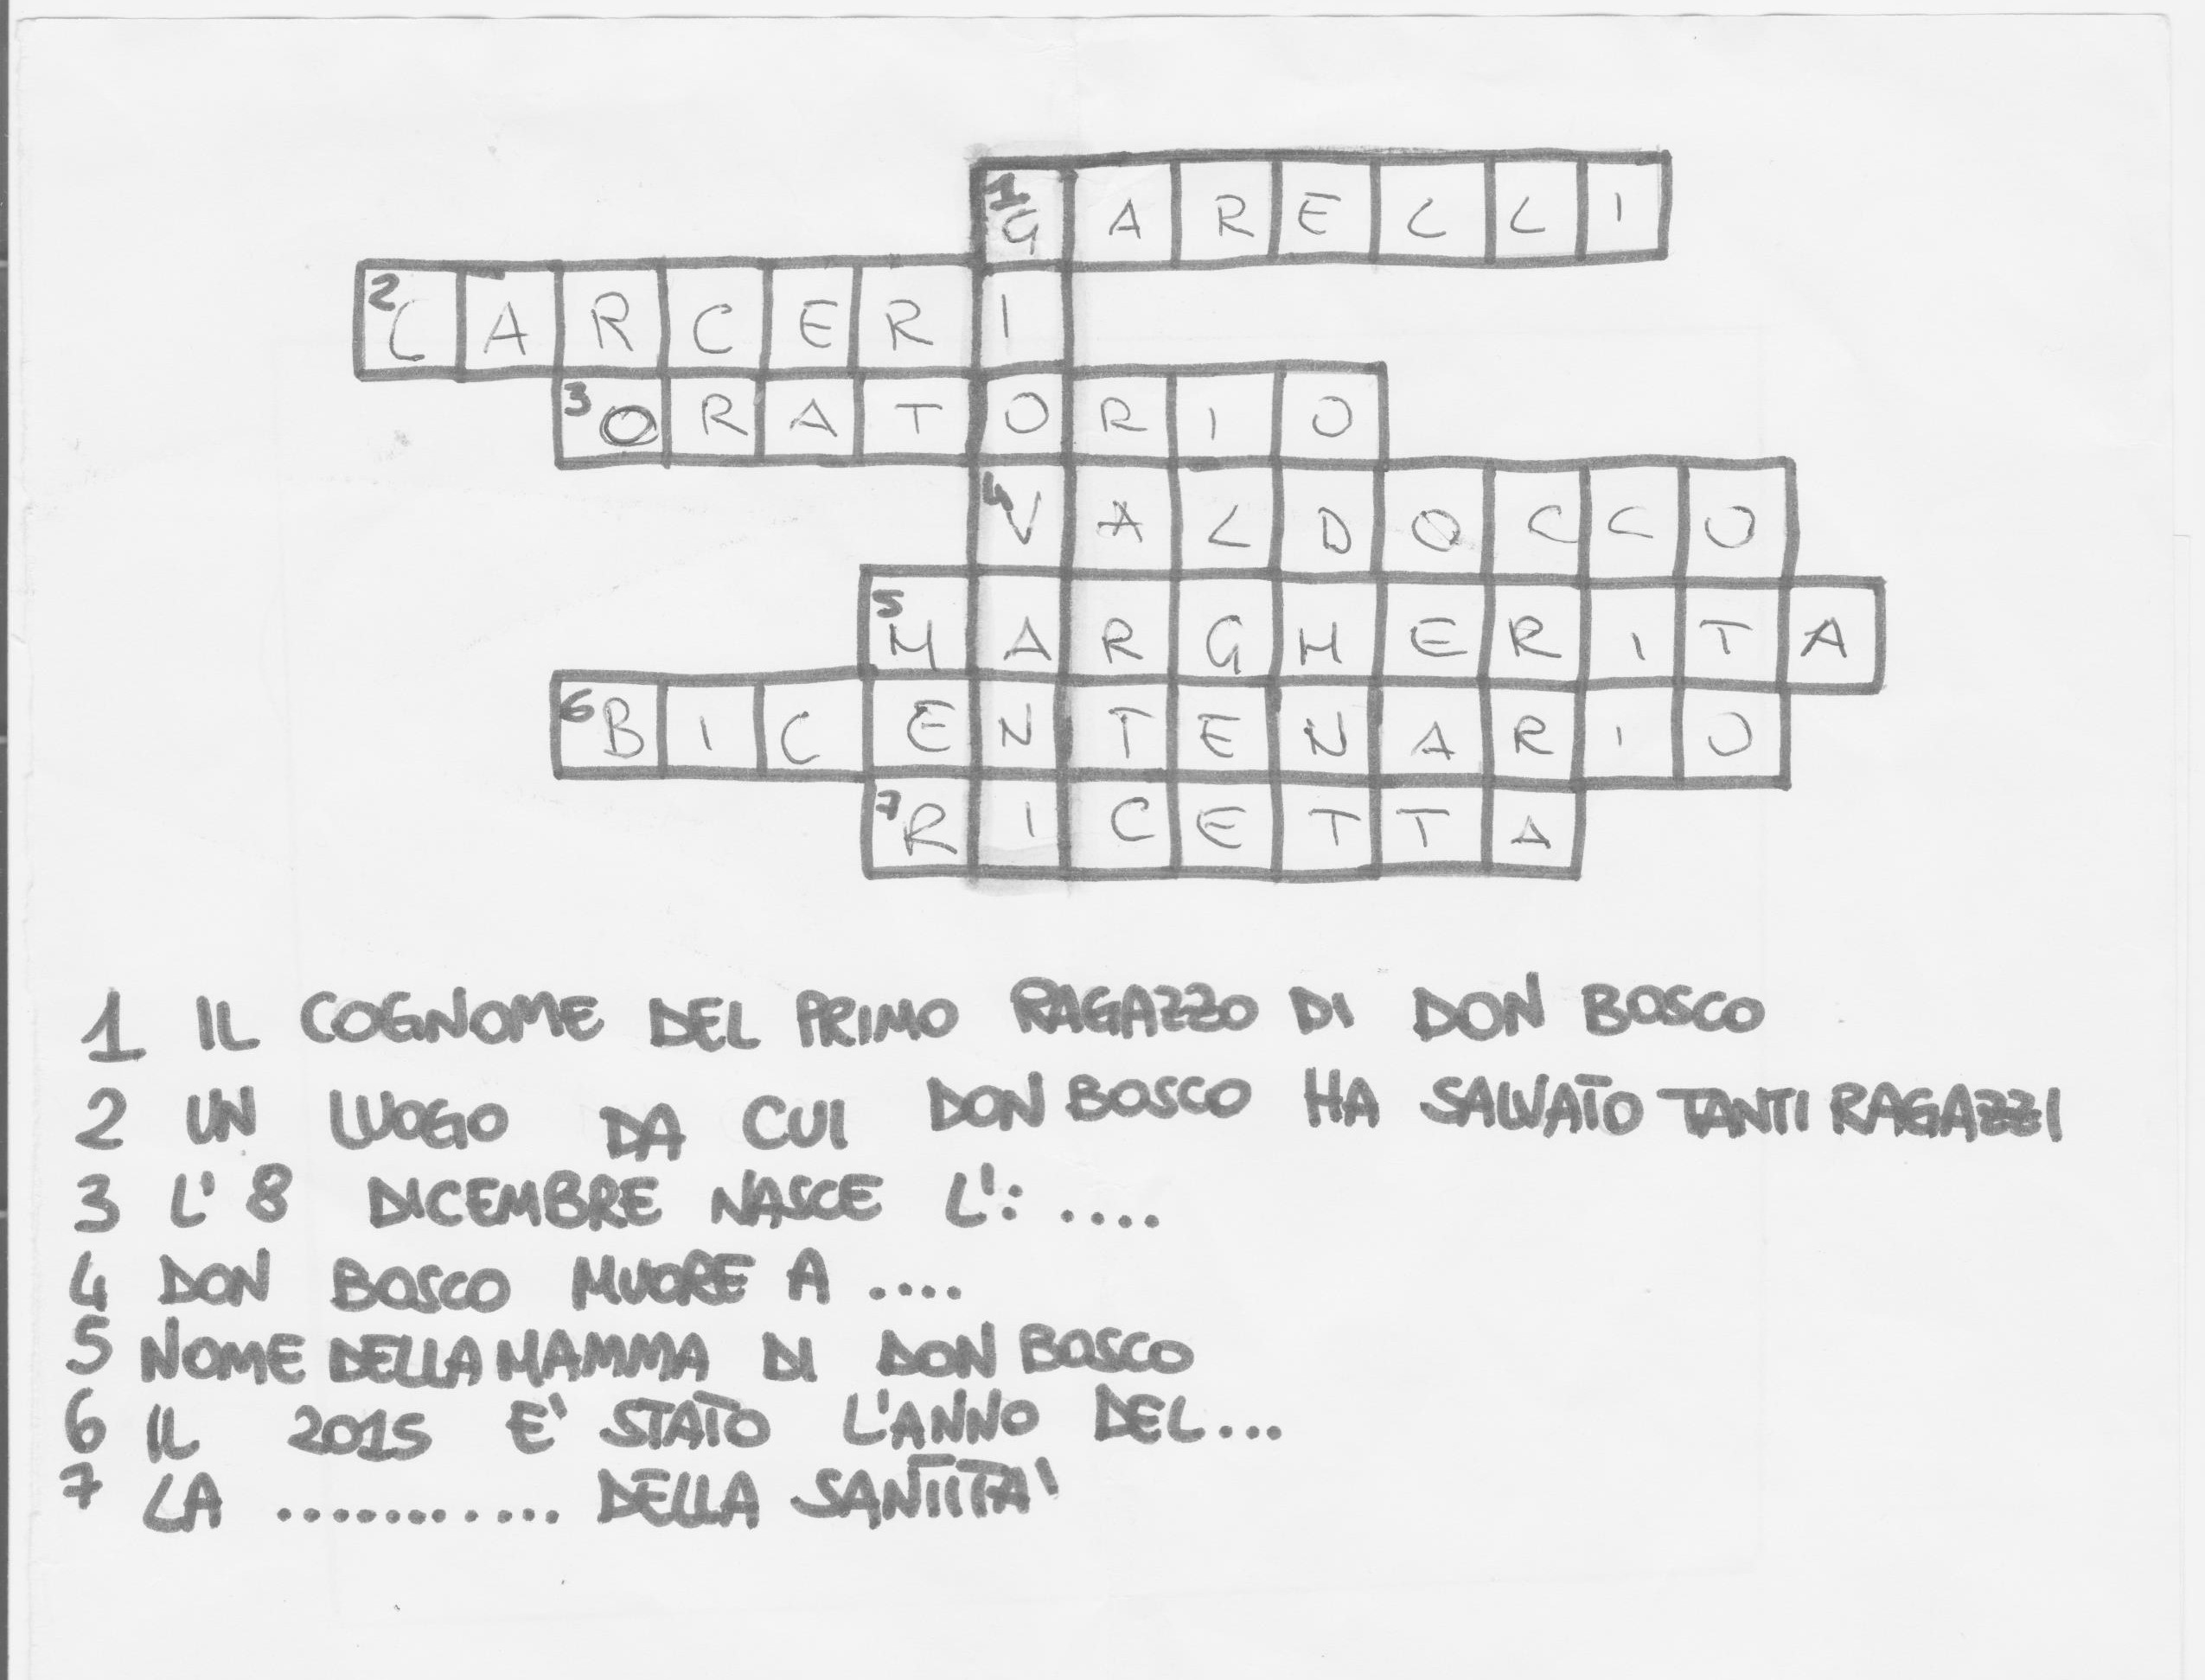 1 G A R E L L I
2 C A R C E R I
3 O R A T O R I O
4 V A L D O C C O
5 M A R G H E R I T A
6 B I C E N T E N A R I O
7 R I C E T T A
1 IL COGNOME DEL PRIMO RAGAZZO DI DON BOSCO
2 UN LUOGO DA CUI DON BOSCO HA SALVATO TANTI RAGAZZI
3 L' 8 DICEMBRE NASCE L': ....
4 DON BOSCO MUORE A ....
5 NOME DELLA MAMMA DI DON BOSCO
6 IL 2015 E' STATO L'ANNO DEL...
7 LA ........... DELLA SANTITA'